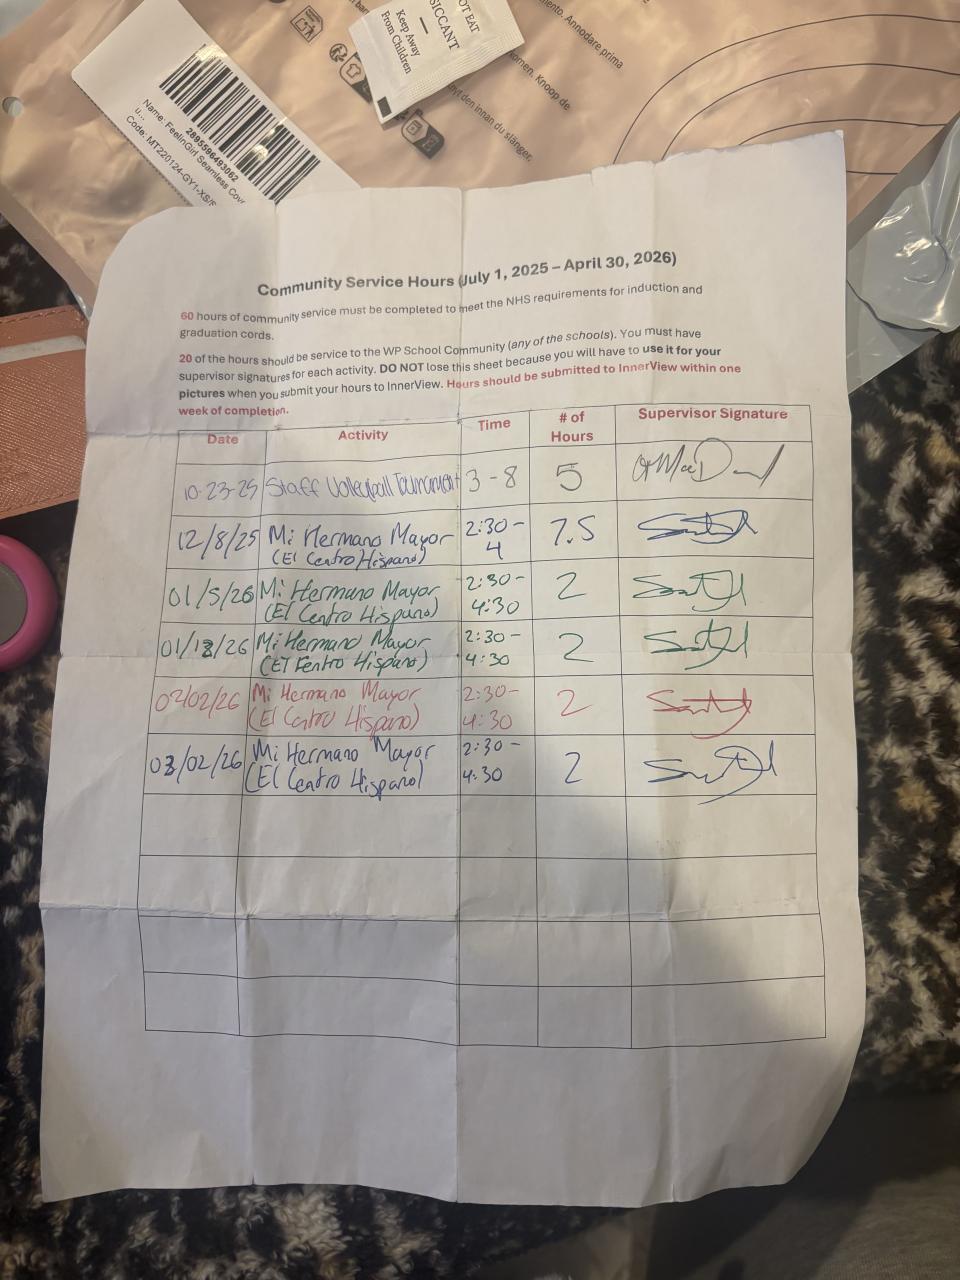 OT EAT
SICCANT
Keep Away
From Children
mento. Annodare prima
omen. Knoop de
nyt den innan du slänger.
2895596493062
Name: FeelinGirl Seamless Cover
u...
Code: MT220124-GY1-XS/S
Community Service Hours (July 1, 2025 – April 30, 2026)
60 hours of community service must be completed to meet the NHS requirements for induction and
graduation cords.
20 of the hours should be service to the WP School Community (any of the schools). You must have
supervisor signatures for each activity. DO NOT lose this sheet because you will have to use it for your
pictures when you submit your hours to InnerView. Hours should be submitted to InnerView within one
week of completion.
Date Activity Time # of Hours Supervisor Signature
10-23-25 Staff Volleyball Tournament 3 - 8 5
12/8/25 Mi Hermano Mayor (El Centro Hispano) 2:30 - 4 7.5
01/5/26 Mi Hermano Mayor (El Centro Hispano) 2:30 - 4:30 2
01/12/26 Mi Hermano Mayor (El Fentro Hispano) 2:30 - 4:30 2
02/02/26 Mi Hermano Mayor (El Centro Hispano) 2:30 - 4:30 2
03/02/26 Mi Hermano Mayor (El Centro Hispano) 2:30 - 4:30 2